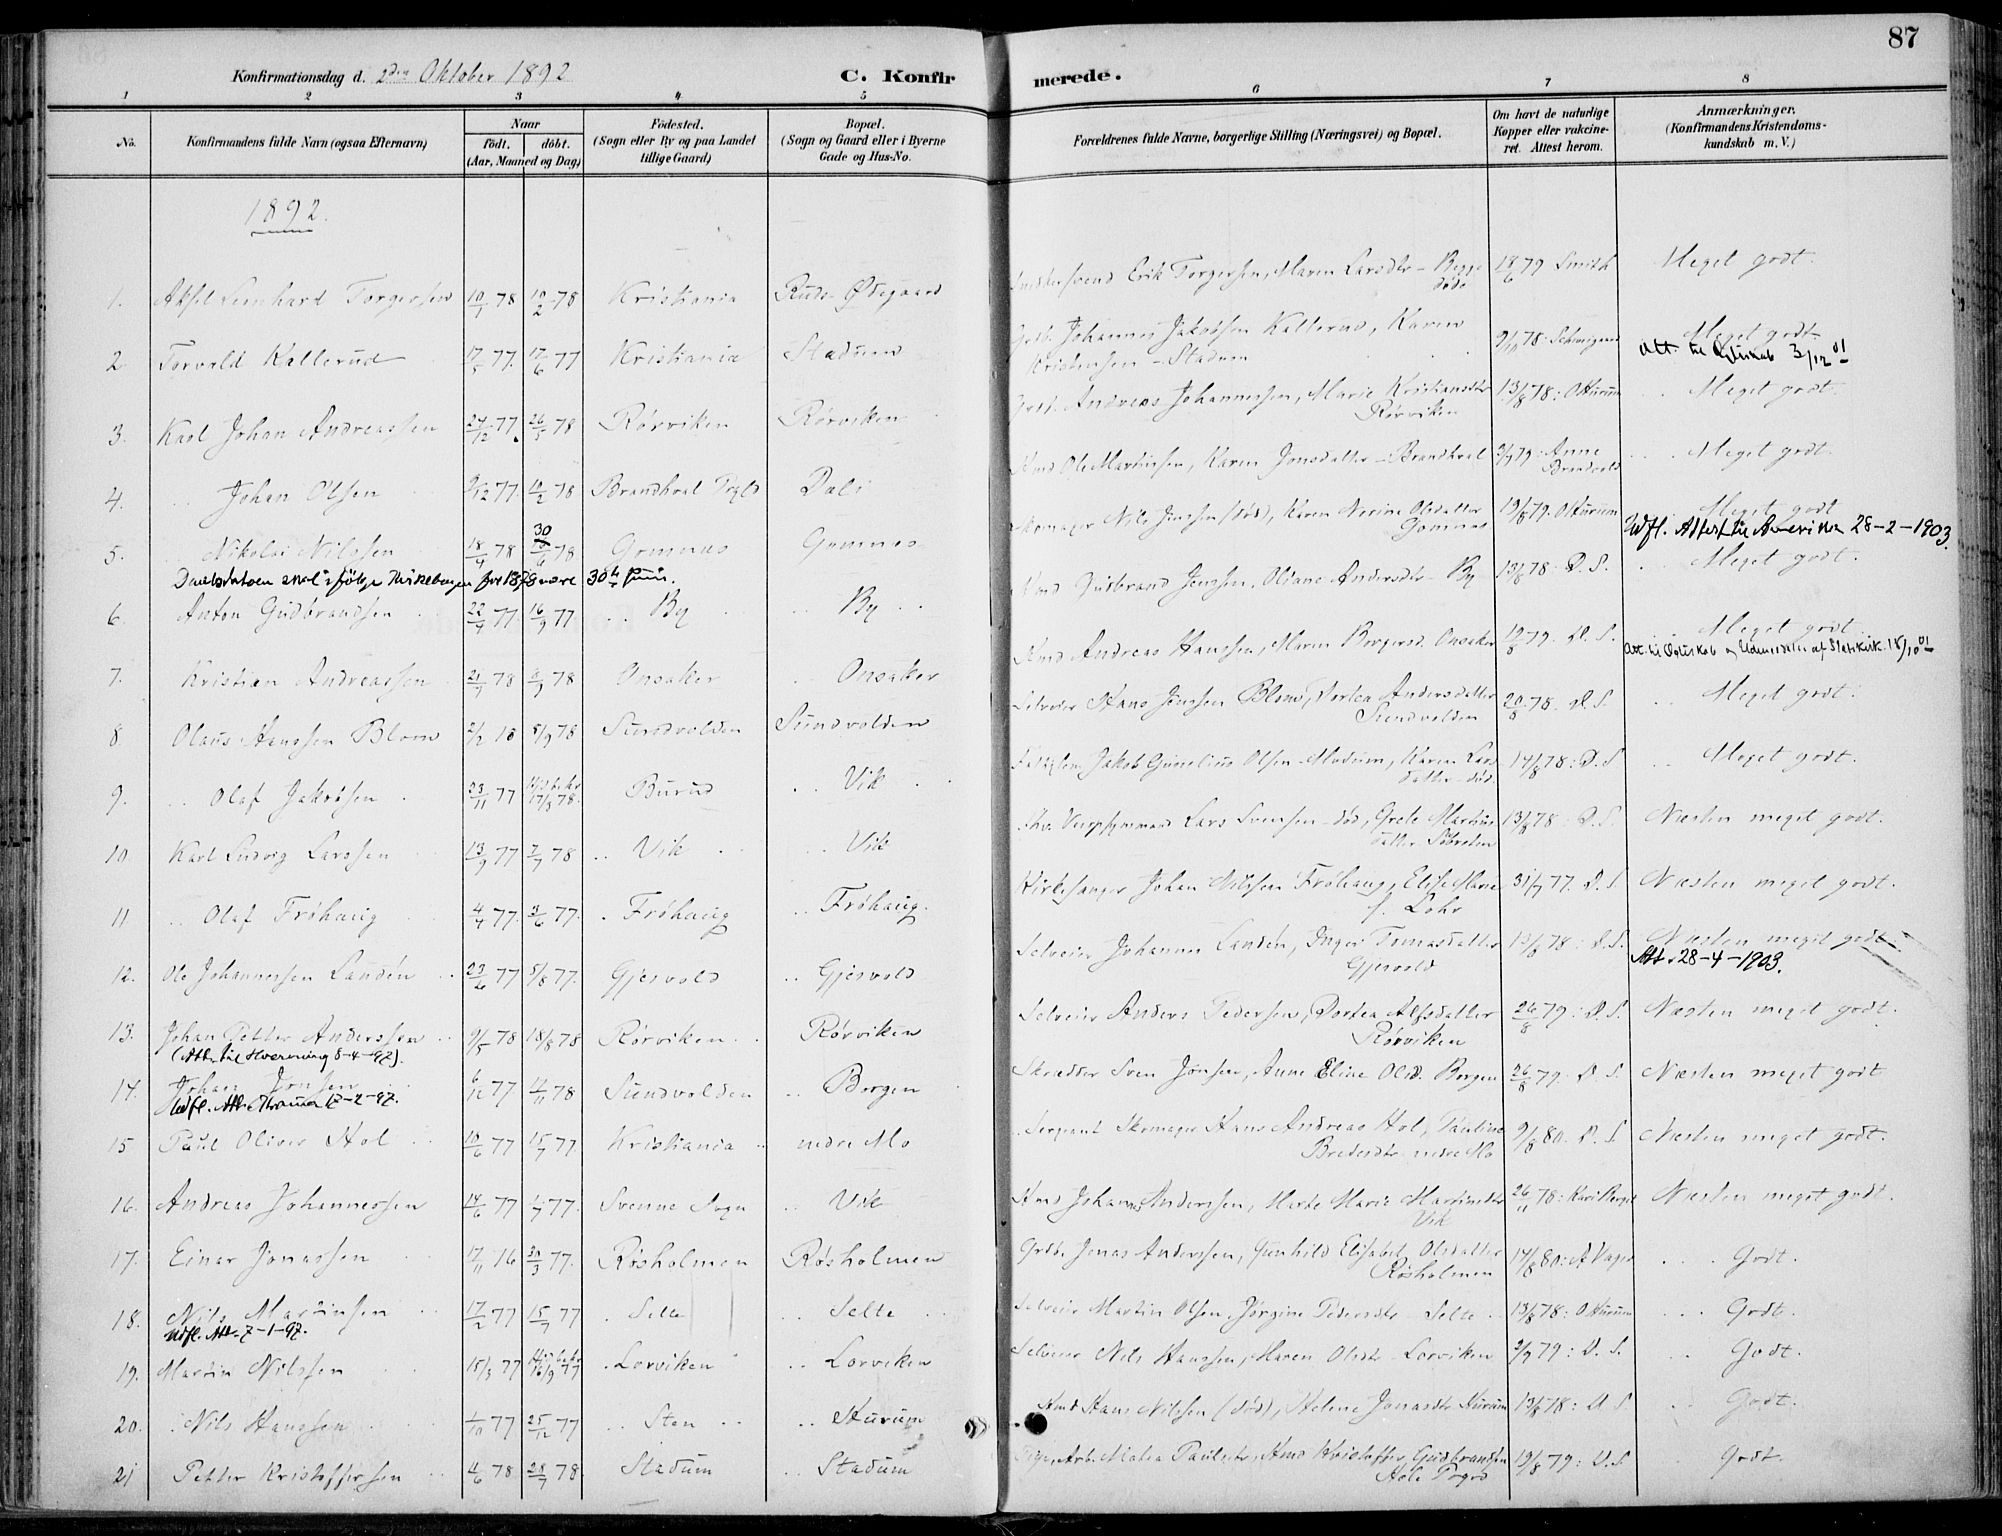 87
Konfirmationsdag d. 2den Oktober 1892
C. Konfirmerede.
1 2 3 4 5 6 7 8
No.
Konfirmandens fulde Navn (ogsaa Efternavn)
Naar
født. døbt.
(Aar, Maaned og Dag)
Fødested.
(Sogn eller By og paa Landet
tillige Gaard)
Bopæl.
(Sogn og Gaard eller i Byerne
Gade og Hus-No.
Forældrenes fulde Navne, borgerlige Stilling (Næringsvei) og Bopæl.
Om havt de naturlige
Kopper eller vakcine-
ret. Attest herom.
Anmærkninger.
(Konfirmandens Kristendoms-
kundskab m. V.)
1892.
1. Aksel Leonhard Torgersen 10/1 78 10/2 78 Kristiania Ruds-Ødegaard Snedkersvend Erik Torgersen, Maren Larsdtr - Begge døde 18/6 79 Smith Meget godt.
2 Torvald Kallerud 17/5 77. 17/6 77 Kristiania Stadum Grdb. Johannes Jakobsen Kallerud, Karen Kristensen - Stadum 9/10 78. Meget godt
Att. til Ægteskab 3/12 01
3. Karl Johan Andreassen 24/12 77. 26/5 78 Rørviken Rørviken Grdb. Andreas Johannessen, Marie Kristiansdtr Rørviken 13/8 78: O Hurum Meget godt.
4. Johan Olsen 9/12 77. 10/2 78 Brandhval Dali Kmd Ole Martinsen, Karen Jonsdatter - Brandhval 3/9 79. Anne Meget godt.
5. Nikolai Nilssen 18/4 78 30/6 78 Gomnes Gomnes Skomager Nils Jenssen (død), Karen Nerine Olsdatter Gomnes 19/8 79. O Hurum Meget godt
Udfl. Attest til Amerika 28-2-1903.
Daabsdatoen skal ifølge Kirkebogen for 1878 være 30te Juni.
6. Anton Gudbrandsen 22/7 77. 16/9 77 By By Kmd Gudbrand Jenssen, Oliane Andersdtr - By 13/8 78. D. S. Meget godt.
7. Kristian Andreassen 21/1 78 Onsaker Onsaker Kmd Andreas Hanssen, Maren Borgersd. Onsaker 19/8 79. D. S. Meget godt
Att. til Ægteskab og Udmeldelse af Statskirk. 18/10 01
8 Olaus Hanssen Blom 2/2 78 8/9 78 Sundvolden Sundvolden Selveier Hans Jenssen Blom, Dortea Andersdatter Sundvolden 20/8 78. D. S. Meget godt.
9. Olaf Jakobsen 23/11 77 17/3 78. Burud Vik Jakob Gunelius Olsen - Modum, Karen Larsdatter - død. 14/8 78: D. S Meget godt.
10. Karl Ludvig Larssen 13/9 77 7/7 78 Vik Vik Lars Svensen - død, Grete Martinsdatter 13/8 78: D. S. Næsten meget godt.
11 Olaf Frøhaug 4/4 77. 3/6 77. Frøhaug Frøhaug. Kirkesanger Johan Nilssen Frøhaug, Elise Marie f. Lohr 31/7 77. D. S. Næsten meget godt.
12. Ole Johannessen Landén 23/6 77 5/8 77. Gjesvold Gjesvold Selveier Johannes Landén, Inger Tomasdatter Gjesvold 13/8 78: D. S. Næsten meget godt.
Att. 28-4-1903.
13. Johan Petter Anderssen 9/5 78 18/8 78 Rørviken Rørviken Selveier Anders Pedersen, Dortea Alfsdatter Rørviken 26/8 79: D. S. Næsten meget godt.
(Att. til Hvervning 8-4-97).
14. Johan Jonsen 6/12 77. 78 Sundvolden Borgen Skrædder Sven Jonsen, Anne Eline Olsd. Borgen 26/8 79: D. S Næsten meget godt
Udfl. Att. 17-2-97.
15 Paul Oliver Hol 10/6 77 15/7 77. Kristiania nedre Mo Sergeant Skomager Hans Andreas Hol, Pauline Bredesdtr nedre Mo 9/8 80. D. S Næsten meget godt.
16. Andreas Johannessen 14/6 77 77. Svenne Sogn Vik Kmd Johannes Anderssen, Marte Marie Martinsdtr Vik 26/11 78: Næsten meget godt.
17. Einar Jonassen 17/11 76 30/3 77. Røsholmen Røsholmen Grdb. Jonas Anderssen, Gunhild Elisabet Olsdatter Røsholmen 14/8 80: Godt.
18. Nils Martinsen 17/2 77 15/7 77 Selte Selte Selveier Martin Olsen, Jørgine Pedersdtr - Selte 13/8 78: O Hurum Godt.
Udfl. Att. 7-1-97.
19. Martin Nilssen 15/3 77 16/9 77 Lorviken Lorviken Selveier Nils Hanssen, Maren Olsdtr - Lorviken 3/9 79: D. S. Godt.
20. Nils Hanssen 1/10 77 25/12 77 Sten Hurum Kmd Hans Nilssen (død), Helene Jonasdtr Hurum 13/8 78: D S Godt.
21 Petter Kristoffersen 4/6 78 28/7 78. Stadum Stadum Pige, Arb. Malia Paulsdtr, Kmd Kristoffer Gudbrandsen 19/8 79: D. S Godt.